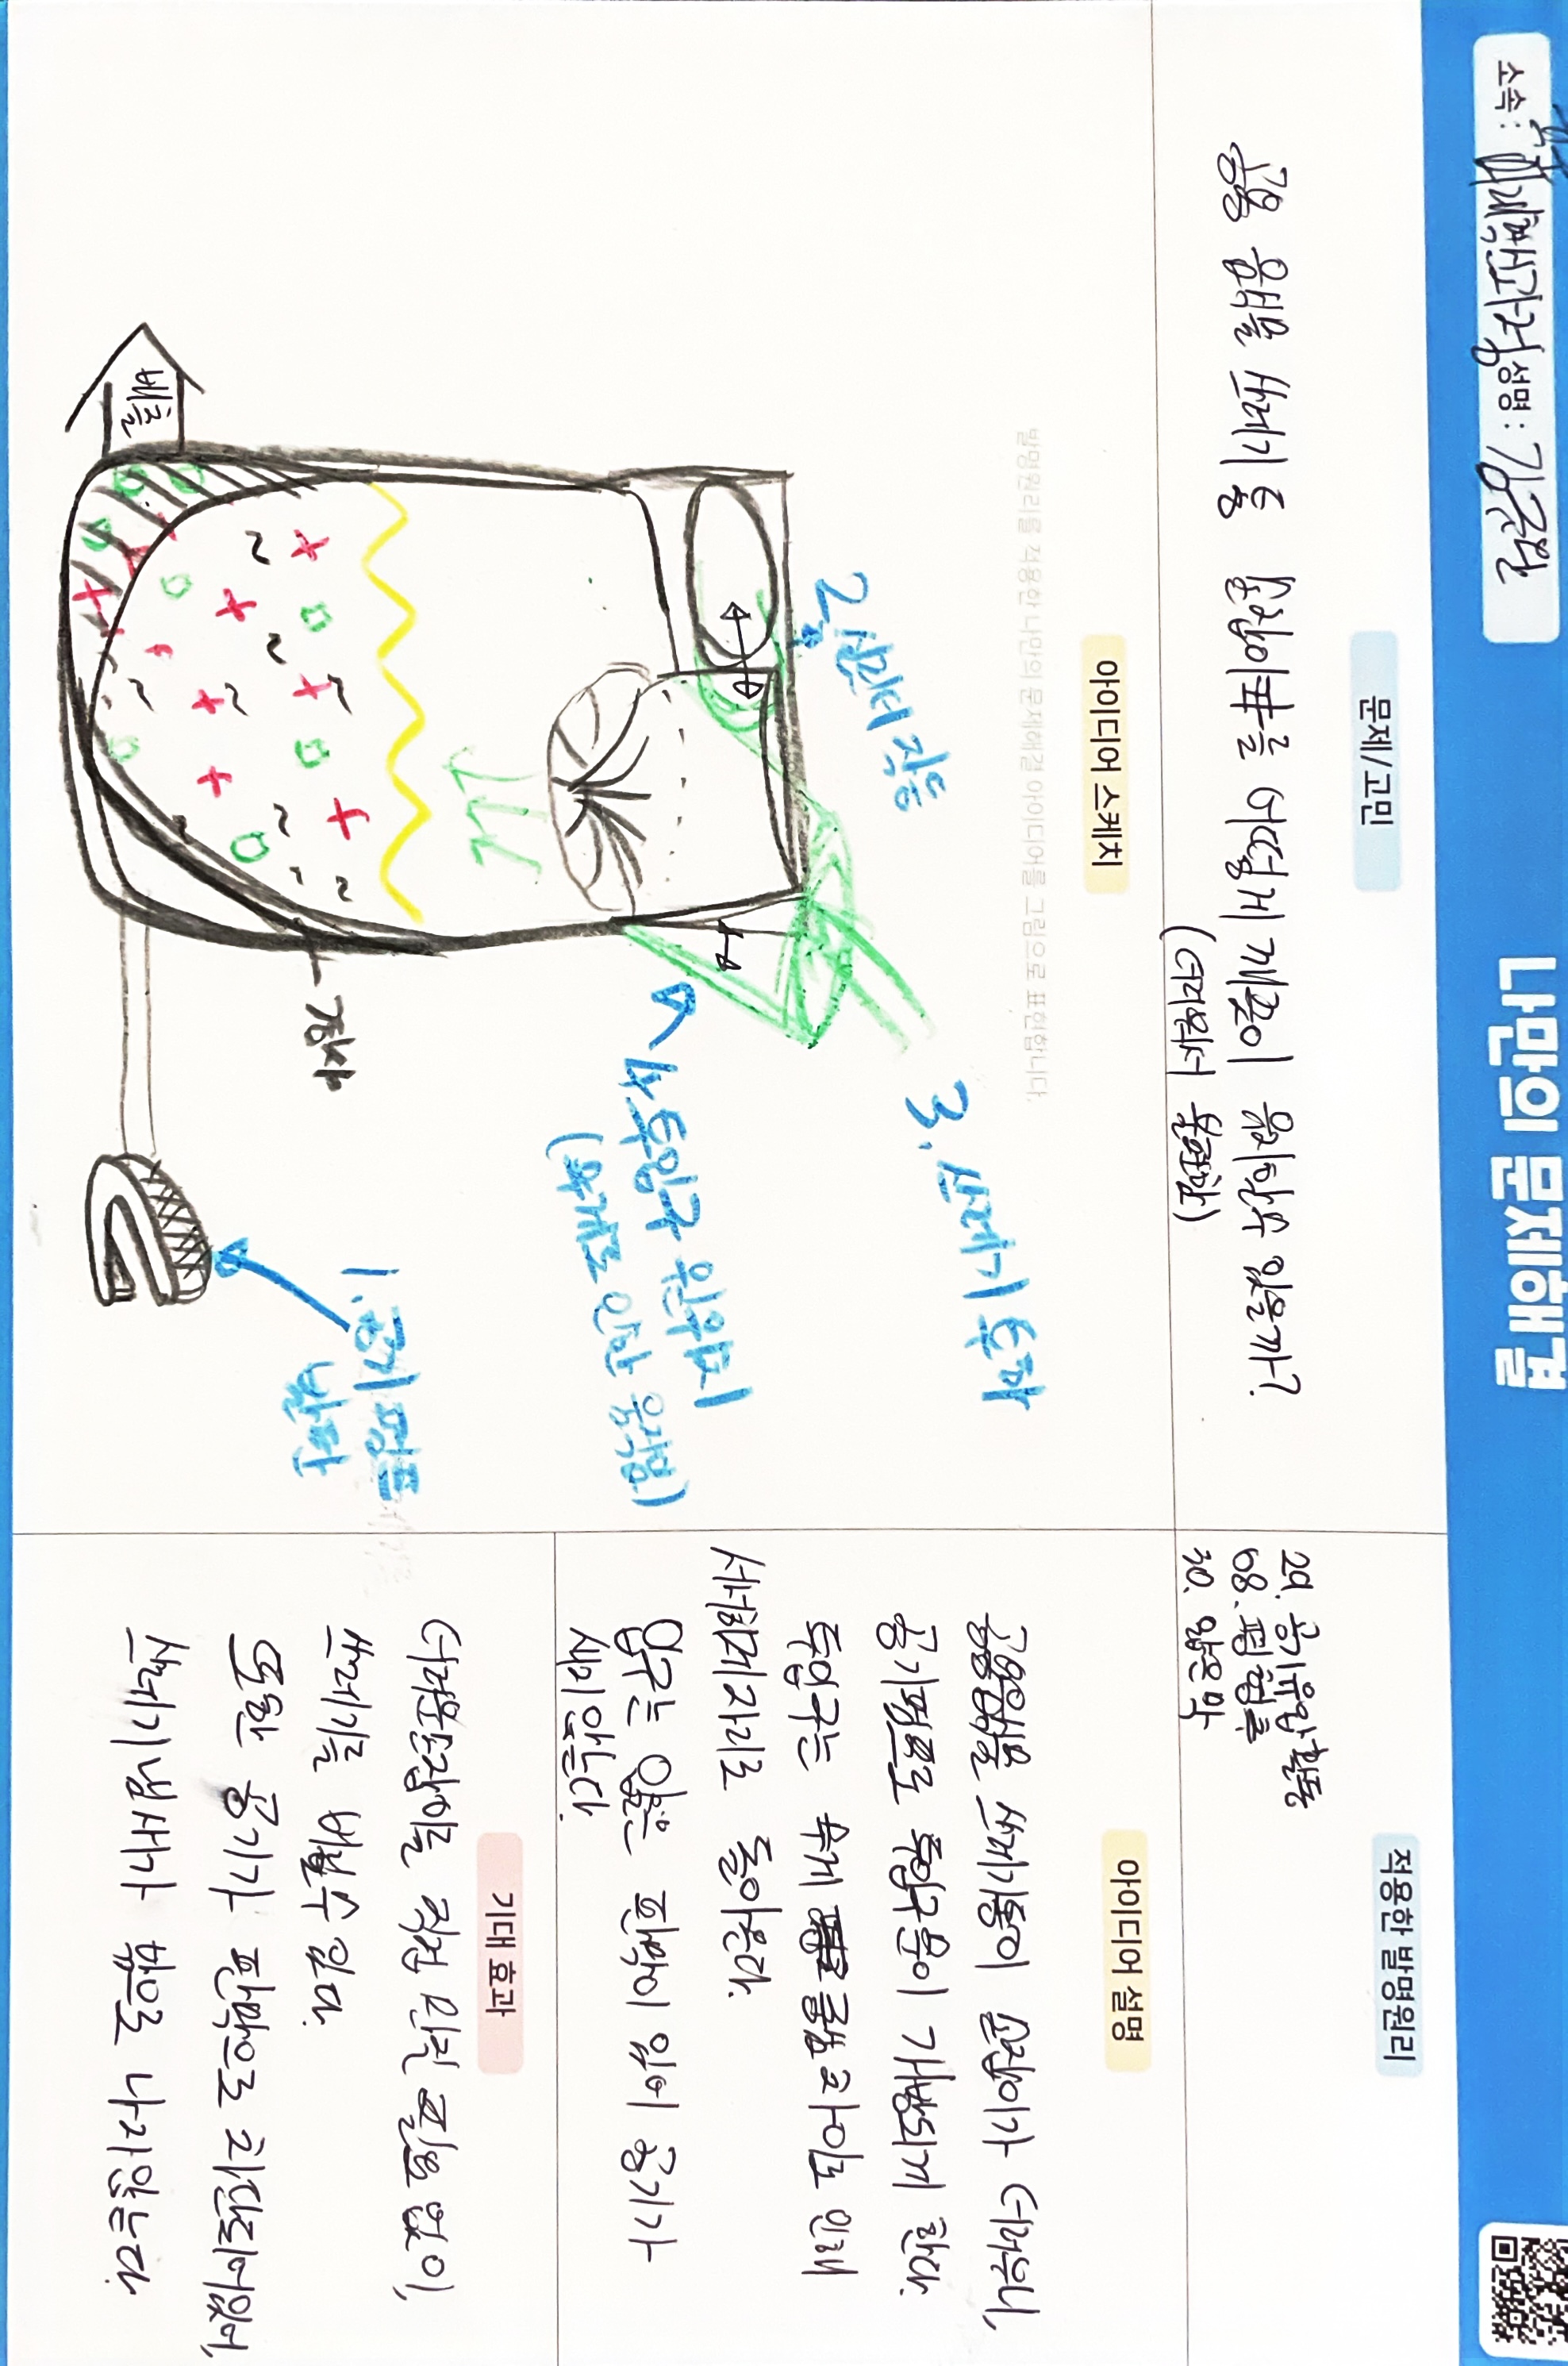 나만의 문제해결
소속 : 미래혁신과정 성명 : 김근완
문제/고민
공용 음식물 쓰레기통 손잡이를 어떻게 깨끗이 유지할수 있을까?
(더러워서 불편함)
적용한 발명원리
29. 공기유압활동
08. 평형추
30. 얇은막
아이디어 스케치
발명원리를 적용한 나만의 문제해결 아이디어를 그림으로 표현합니다.
3. 쓰레기 투하
2. 실린더 작동
4. 투입구 원위치
(무게로 인한 움직임)
1. 공기 펌프
발판
경사
배출
아이디어 설명
공용음식물 쓰레기통이 손잡이가 더러우니,
공기펌프로 투입구문이 개방되게 한다.
투입구는 무게 중심 차이로 인해
서서히제자리로 돌아온다.
입구는 얇은 판막이 있어 공기가
새지 않는다.
기대 효과
더러운손잡이를 직접 만질 필요 없이,
쓰레기를 버릴수 있다.
또한 공기가 판막으로 차단되어있어,
쓰레기냄새가 밖으로 나지않는다.